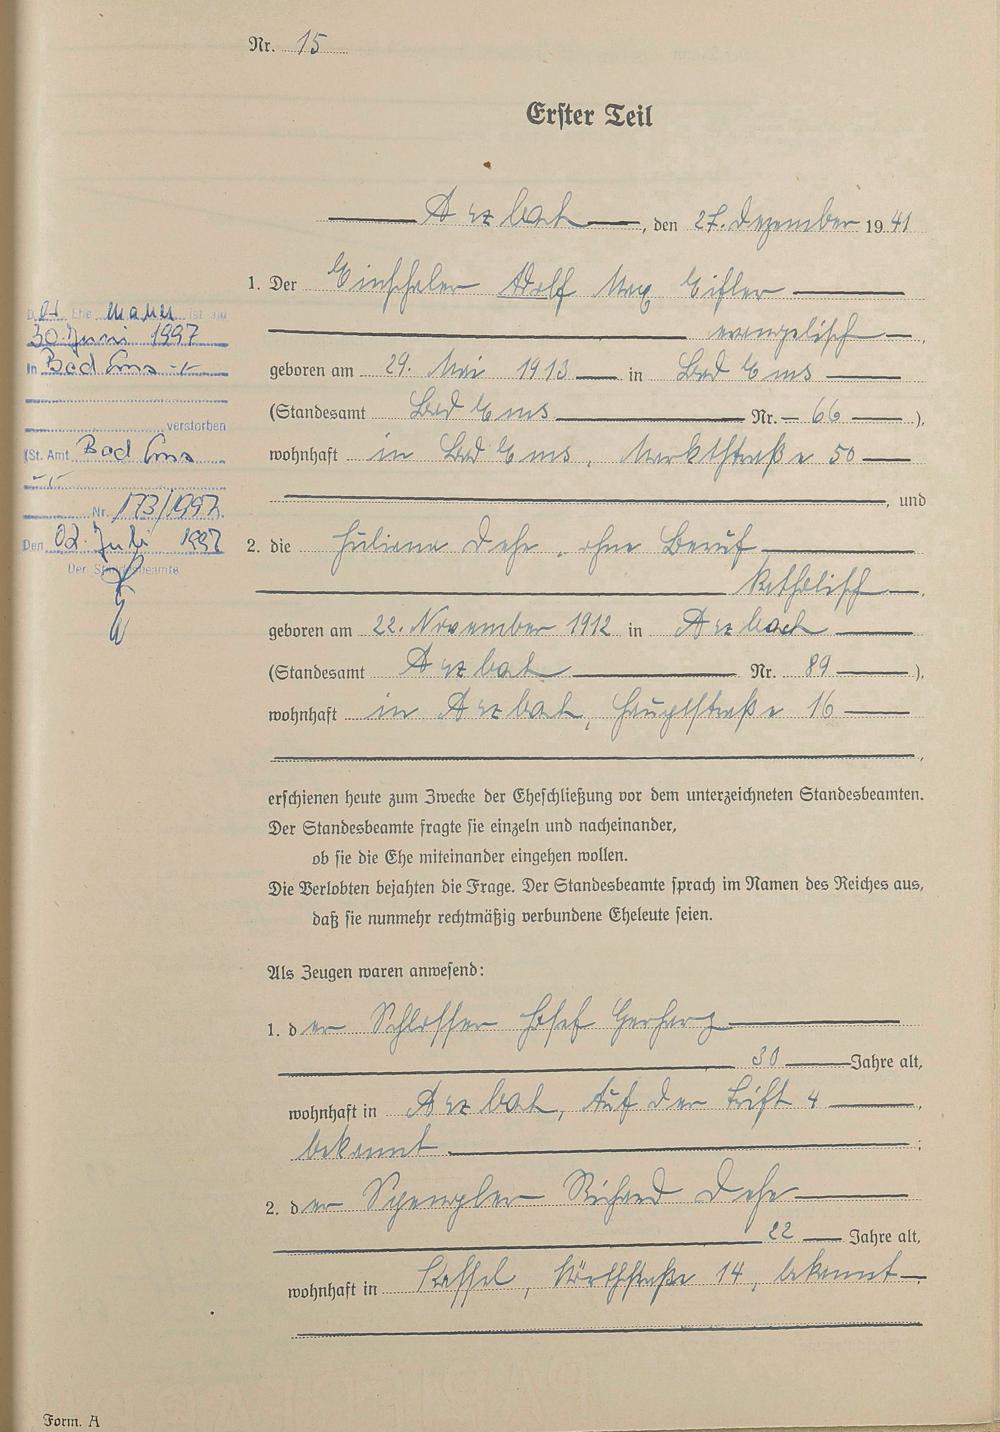 Nr. 15
Erster Teil
Arzbach, den 27. Dezember 1941
1. Der Einschaler Adolf Max Eifler
evangelisch,
geboren am 29. Mai 1913 in Bad Ems
(Standesamt Bad Ems Nr. 66),
wohnhaft in Bad Ems, Marktstraße 50
, und
2. die Juliana Dehe, ohne Beruf
katholisch,
geboren am 22. November 1912 in Arzbach
(Standesamt Arzbach Nr. 89),
wohnhaft in Arzbach, Hauptstraße 16
,
erschienen heute zum Zwecke der Eheschließung vor dem unterzeichneten Standesbeamten.
Der Standesbeamte fragte sie einzeln und nacheinander,
ob sie die Ehe miteinander eingehen wollen.
Die Verlobten bejahten die Frage. Der Standesbeamte sprach im Namen des Reiches aus,
daß sie nunmehr rechtmäßig verbundene Eheleute seien.
Als Zeugen waren anwesend:
1. der Schlosser Josef Gerharz
30 Jahre alt,
wohnhaft in Arzbach, Auf der Trift 4,
bekannt;
2. der Spengler Richard Dehe
22 Jahre alt,
wohnhaft in Kassel, Wörthstraße 14, bekannt
Form. A
Der Ehemann ist am
30. Juni 1997
in Bad Ems
verstorben
(St. Amt Bad Ems
Nr. 173/1997.
Den 02. Juli 1997
Der Standesbeamte